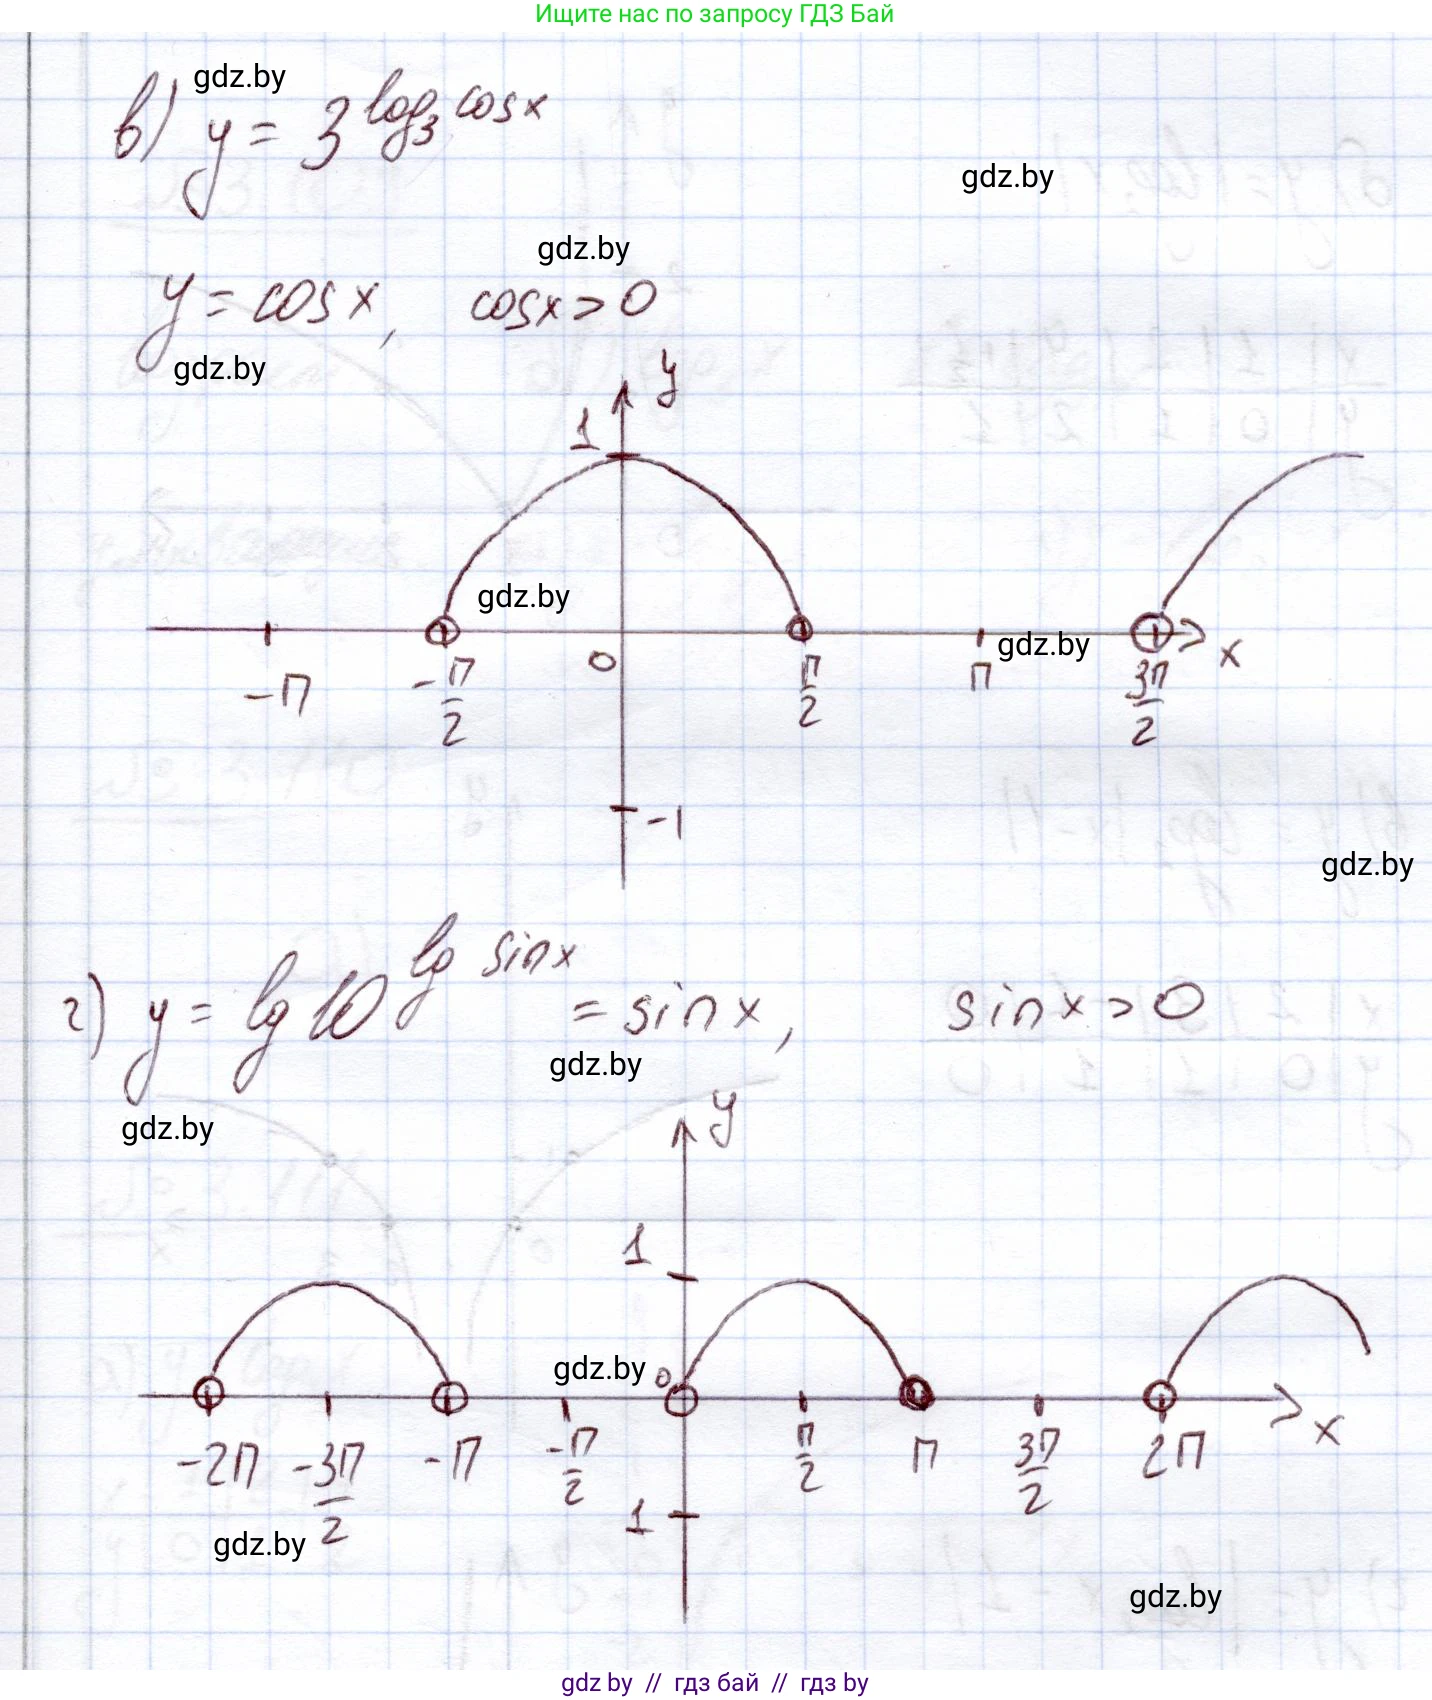 Ищите нас по запросу ГДЗ Бай
gdz.by
в) y = 3^{log₃ cosx}
gdz.by
gdz.by
y = cosx, cosx > 0
gdz.by
y
1
gdz.by
gdz.by
0
x
-π
-π/2
π/2
π
3π/2
-1
gdz.by
г) y = lg 10^{lg sinx} = sinx, sinx > 0
gdz.by
gdz.by
y
1
gdz.by
0
x
-2π
-3π/2
-π
-π/2
π/2
π
3π/2
2π
1
gdz.by
gdz.by
gdz by // гдз бай // гдз by